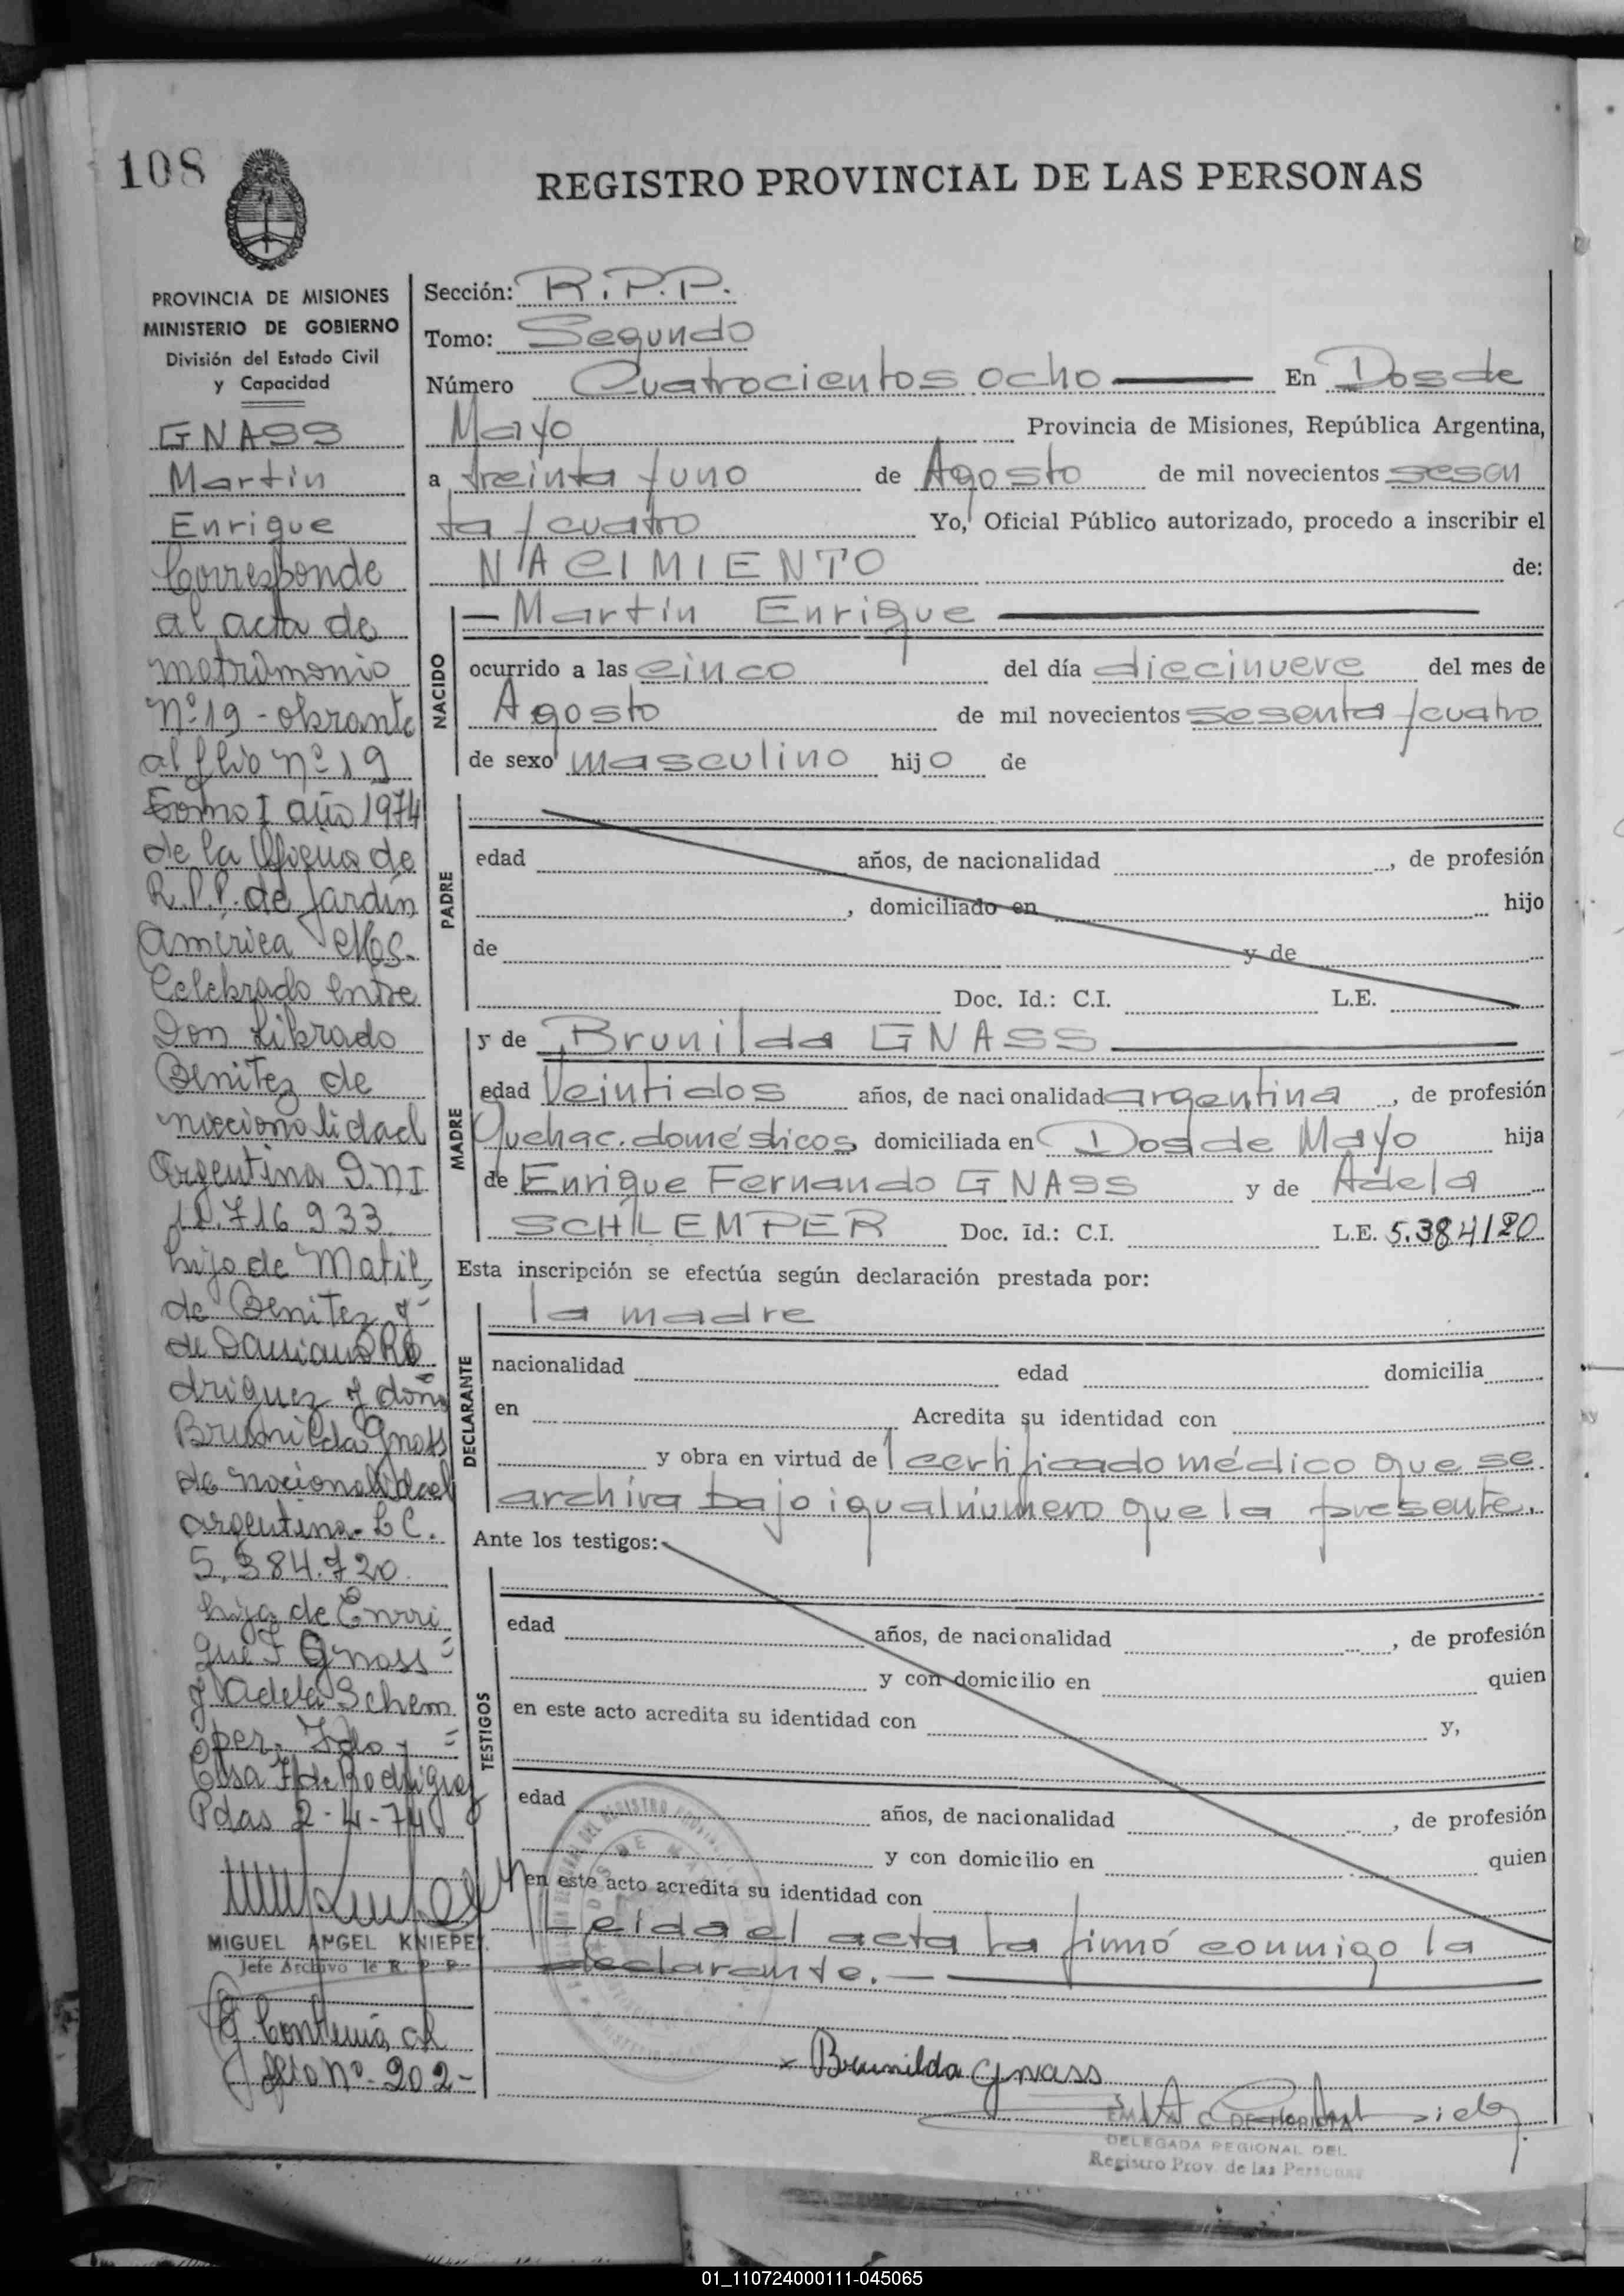 108
REGISTRO PROVINCIAL DE LAS PERSONAS
PROVINCIA DE MISIONES
MINISTERIO DE GOBIERNO
División del Estado Civil
y Capacidad
GNASS
Martin
Enrique
Corresponde
al acta de
matrimonio
Nº 19 - obrante
al flio nº 19
Tomo I año 1974
de la Oficina de
R.P.P. de Jardín
America Mes.
Celebrado entre
Don Librado
Benitez de
nacionalidad
Argentina D.N.I
10.716.933,
hijo de Matil
de Benitez y
de Damiano Ro
driguez y doña
Brunilda Gnass
de nacionalidad
argentina - L C.
5.384.720.
hija de Enrri
que F Gnass
y Adela Schem
per. Fdo -
Elsa F de Rodriguez
Pdas 2-4-74
MIGUEL ANGEL KNIEPER
Jefe Archivo de R. P. P.
Continúa al
flio nº - 202 -
Sección: R.P.P.
Tomo: Segundo
Número Cuatrocientos ocho En Dos de
Mayo Provincia de Misiones, República Argentina,
a treinta y uno de Agosto de mil novecientos sesen
ta y cuatro Yo, Oficial Público autorizado, procedo a inscribir el
NACIMIENTO de:
NACIDO
— Martín Enrique
ocurrido a las cinco del día diecinueve del mes de
Agosto de mil novecientos sesenta y cuatro
de sexo masculino hijo de
PADRE
edad años, de nacionalidad , de profesión
, domiciliado en hijo
de y de
Doc. Id.: C.I. L.E.
MADRE
y de Brunilda GNASS
edad Veintidos años, de nacionalidad argentina, de profesión
Quehac. domésticos domiciliada en Dos de Mayo hija
de Enrique Fernando GNASS y de Adela
SCHLEMPER Doc. Id.: C.I. L.E. 5.384120
Esta inscripción se efectúa según declaración prestada por:
DECLARANTE
la madre
nacionalidad edad domicilia
en Acredita su identidad con
y obra en virtud de 1 certificado médico que se
archiva bajo igual número que la presente.
Ante los testigos:
TESTIGOS
edad años, de nacionalidad , de profesión
y con domicilio en quien
en este acto acredita su identidad con y,
edad años, de nacionalidad , de profesión
y con domicilio en quien
en este acto acredita su identidad con
Leida el acta la firmó conmigo la
declarante. —
x Brunilda Gnass
DELEGADA REGIONAL DEL
Registro Prov. de las Personas
01_110724000111-045065